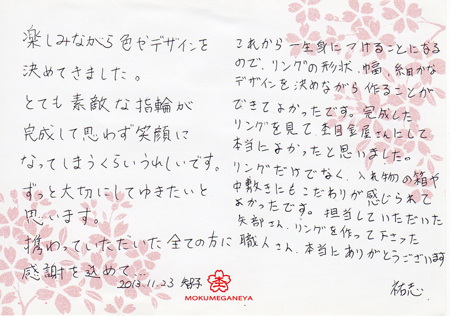 楽しみながら色やデザインを
決めてきました。
とても素敵な指輪が
完成して思わず笑顔に
なってしまうくらいうれしいです。
ずっと大切にしてゆきたいと
思います。
携わっていただいた全ての方に
感謝を込めて…
2013.11.23
これから一生身につけることになる
ので、リングの形状、幅、細かな
デザインを決めながら作ることが
できてよかったです。完成した
リングを見て、杢目金屋さんにして
本当によかったと思いました。
リングだけでなく、入れ物の箱や
中敷きにもこだわりが感じられて
よかったです。担当していただいた
矢部さん、リングを作って下さった
職人さん、本当にありがとうございます
祐志
MOKUMEGANEYA